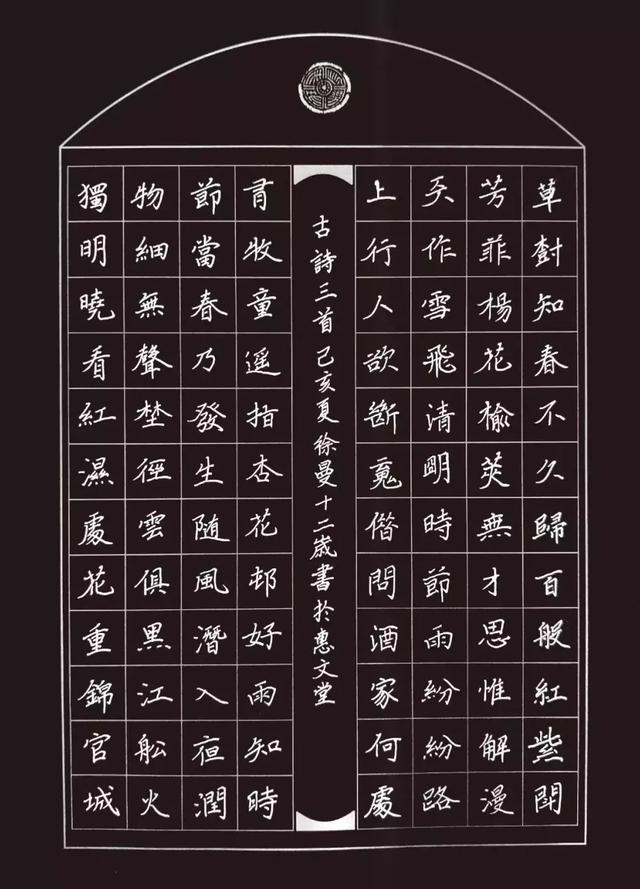 草樹知春不久歸百般紅紫鬥
芳菲楊花榆莢無才思惟解漫
天作雪飛清明時節雨紛紛路
上行人欲斷魂借問酒家何處
有牧童遥指杏花邨好雨知時
節當春乃發生随風潛入夜潤
物細無聲埜徑雲俱黑江舩火
獨明曉看紅濕處花重錦官城
古詩三首己亥夏徐曼十二歲書於惠文堂